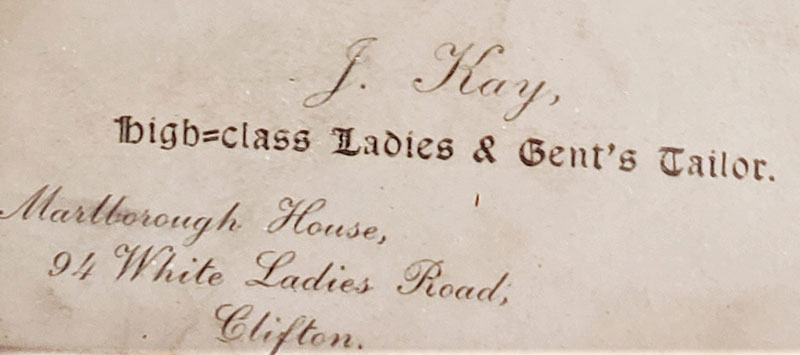 J. Kay,
High=class Ladies & Gent's Tailor.
Marlborough House,
94 White Ladies Road,
Clifton.